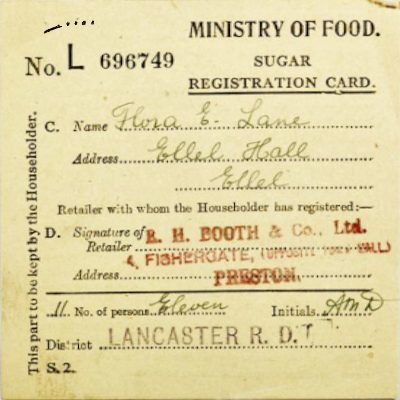 MINISTRY OF FOOD.
No. L 696749
SUGAR
REGISTRATION CARD.
This part to be kept by the Householder.
C. Name Flora E. Lane
Address Ellel Hall
Ellel
Retailer with whom the Householder has registered:—
D. Signature of Retailer R. H. BOOTH & Co., Ltd.
4, FISHERGATE, (OPPOSITE TOWN HALL)
Address PRESTON.
11 No. of persons Eleven Initials AMD
District LANCASTER R. D.
S. 2.